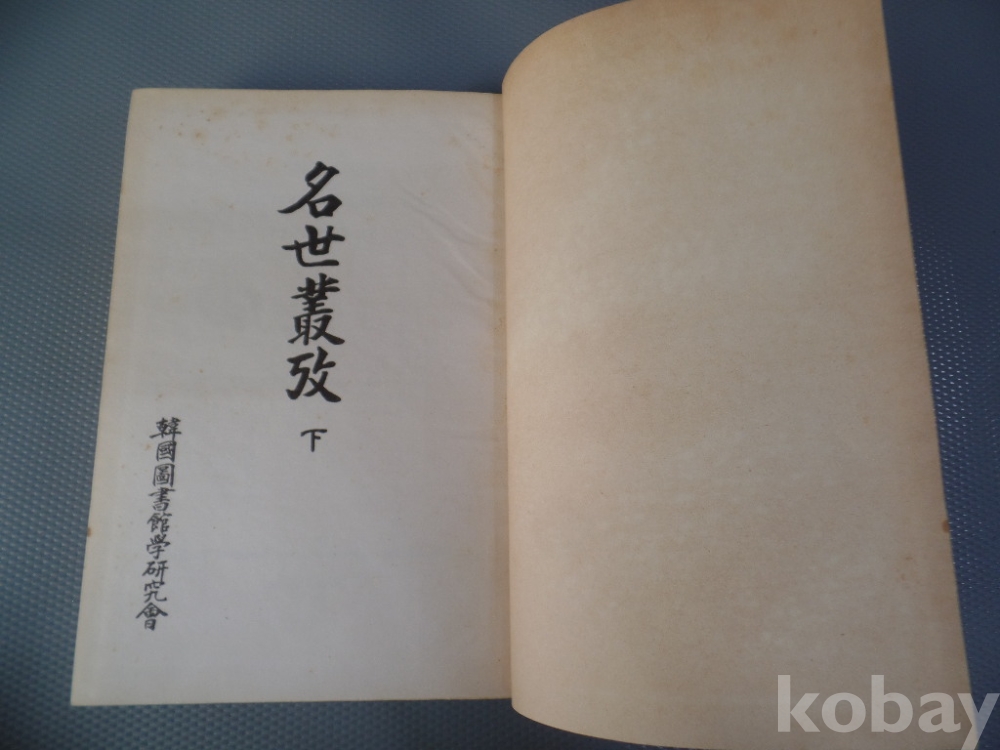 名世叢攷
下
韓國圖書館学研究會
kobay